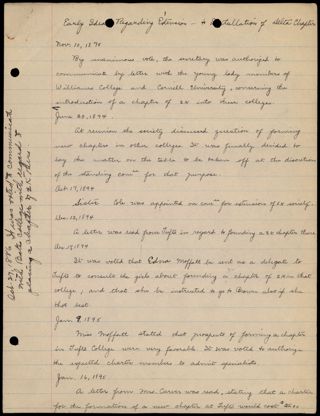 Early Ideas Regarding Extension - & Installation of Delta Chapter
Nov. 10, 1890
By unanimous vote, the secretary was authorized to
communicate by letter with the young lady members of
Williams College and Cornell University, concerning the
introduction of a chapter of ΣK into these colleges.
June 20, 1894
At reunion the society discussed question of forming
new chapters in other colleges. It was finally decided to
lay the matter on the table to be taken off at the discretion
of the standing comtee for that purpose.
Oct. 17, 1894
Sister Cole was appointed on comtee for extension of ΣK society.
Dec. 12, 1894
A letter was read from Tufts in regard to founding a ΣK chapter there
Dec. 1894
It was voted that Edna Moffatt be sent as a delegate to
Tufts to consult the girls about founding a chapter of ΣK in that
college, and that she be instructed to go to Brown also if she
thot best
Jan. 9, 1895
Miss Moffatt stated that prospects of forming a chapter
in Tufts College were very favorable. It was voted to authorize
the expected charter members to admit specialists.
Jan. 16, 1895
A letter from Mrs. Carver was read, stating that a charter
for the formation of a new chapter at Tufts would cost
Oct 27, 1886 It was voted to communicate
with Bates college with regard to
placing a chapter of ΣK there